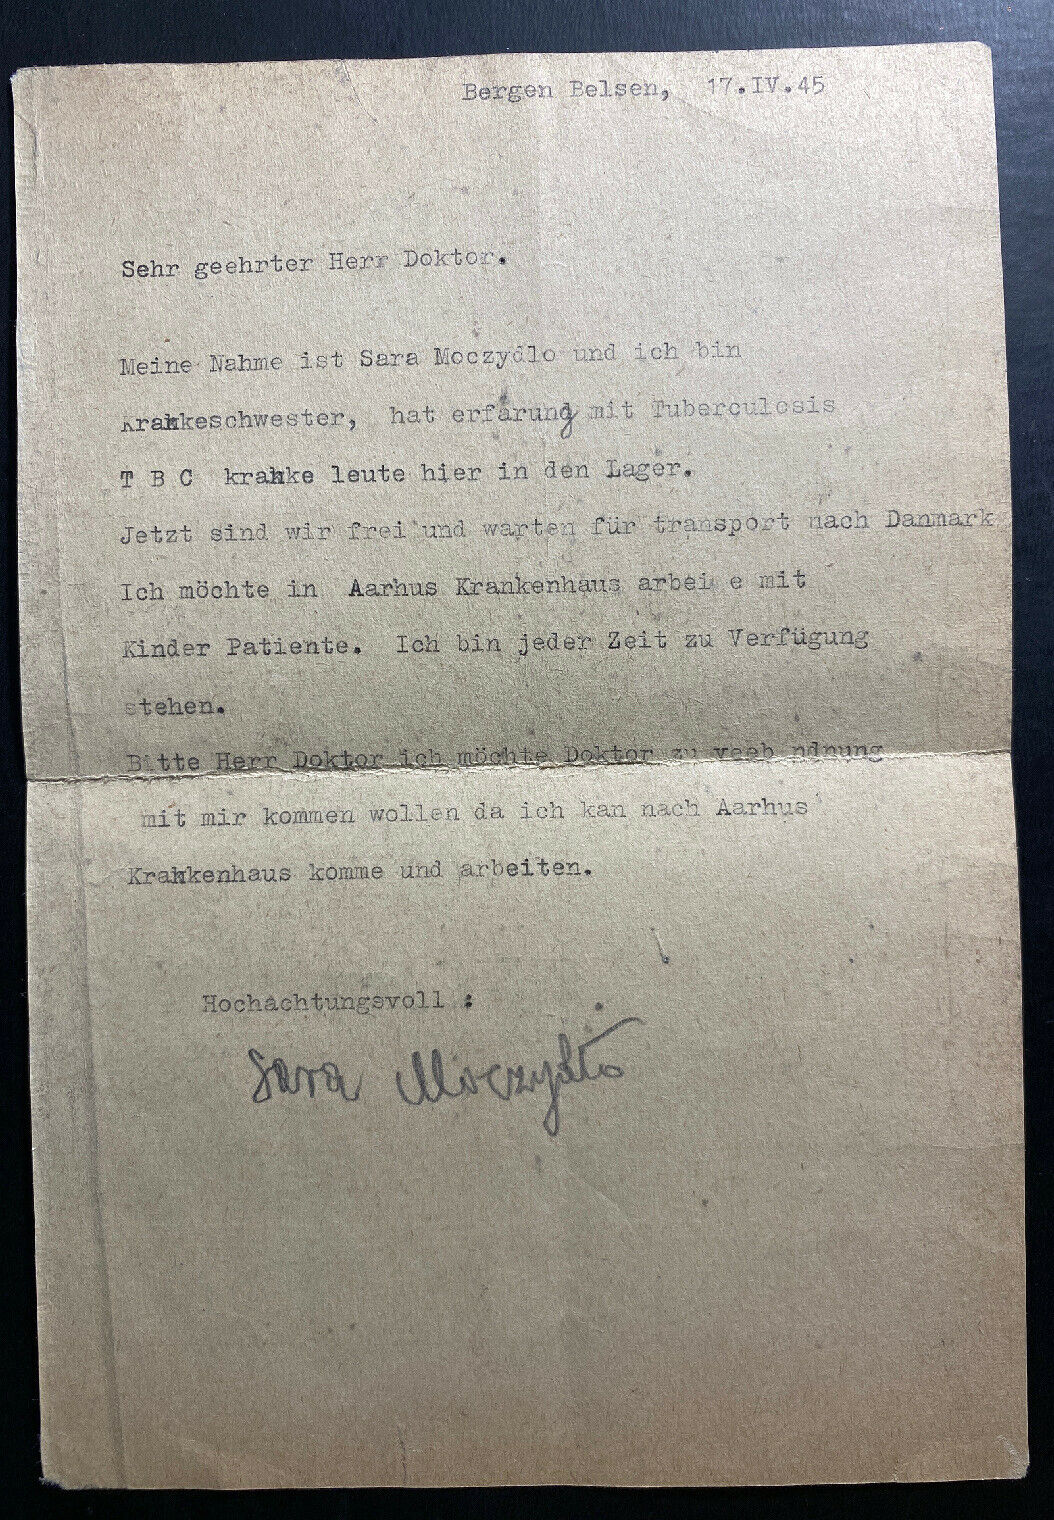 Bergen Belsen, 17.IV.45
Sehr geehrter Herr Doktor.
Meine Nahme ist Sara Moczydlo und ich bin
Krankeschwester, hat erfarung mit Tuberculosis
T B C kranke leute hier in den Lager.
Jetzt sind wir frei und warten für transport nach Danmark
Ich möchte in Aarhus Krankenhaus arbei e mit
Kinder Patiente. Ich bin jeder Zeit zu Verfügung
stehen.
Bitte Herr Doktor ich möchte Doktor zu
mit mir kommen wollen da ich kan nach Aarhus
Krankenhaus komme und arbeiten.
Hochachtungsvoll :
Sara Moczydło